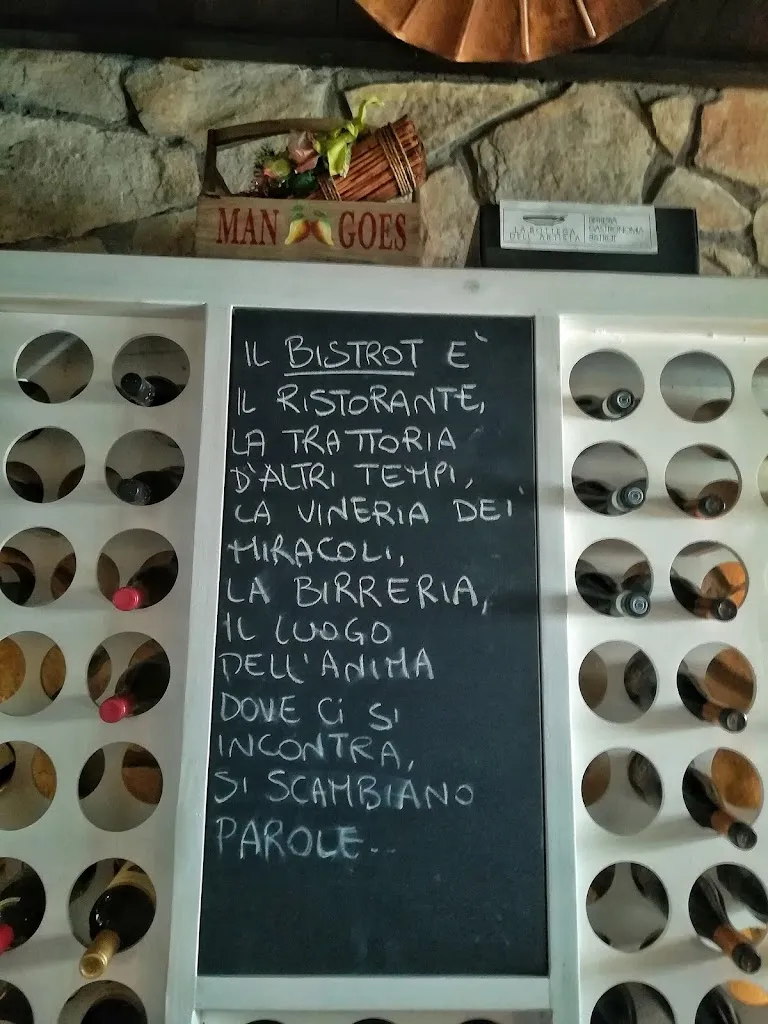 MAN GOES
LA BOTTEGA
DELL'ARTISTA
BIRRERIA
GASTRONOMIA
BISTROT
IL BISTROT E'
IL RISTORANTE,
LA TRATTORIA
D'ALTRI TEMPI,
LA VINERIA DEI
MIRACOLI,
LA BIRRERIA,
IL LUOGO
DELL'ANIMA
DOVE CI SI
INCONTRA,
SI SCAMBIANO
PAROLE...